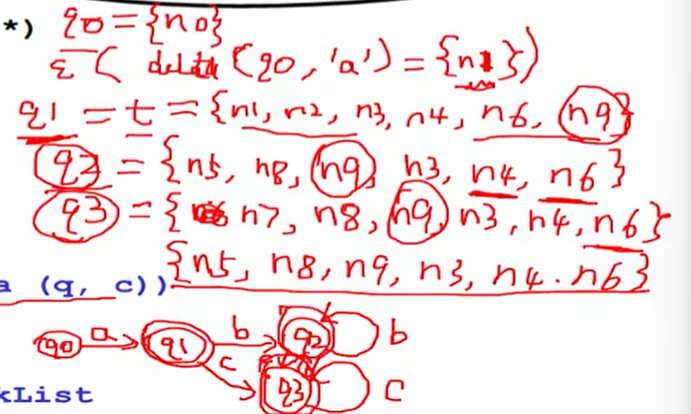 *) q0 = {n0}
ε( delta (q0, 'a') = {n1})
q1 = t = {n1, n2, n3, n4, n6, n9}
q2 = {n5, n8, n9, n3, n4, n6}
q3 = { n7, n8, n9, n3, n4, n6}
{n5, n8, n9, n3, n4. n6}
a (q, c))
q0 a q1 b q2 b
c q3 c
kList